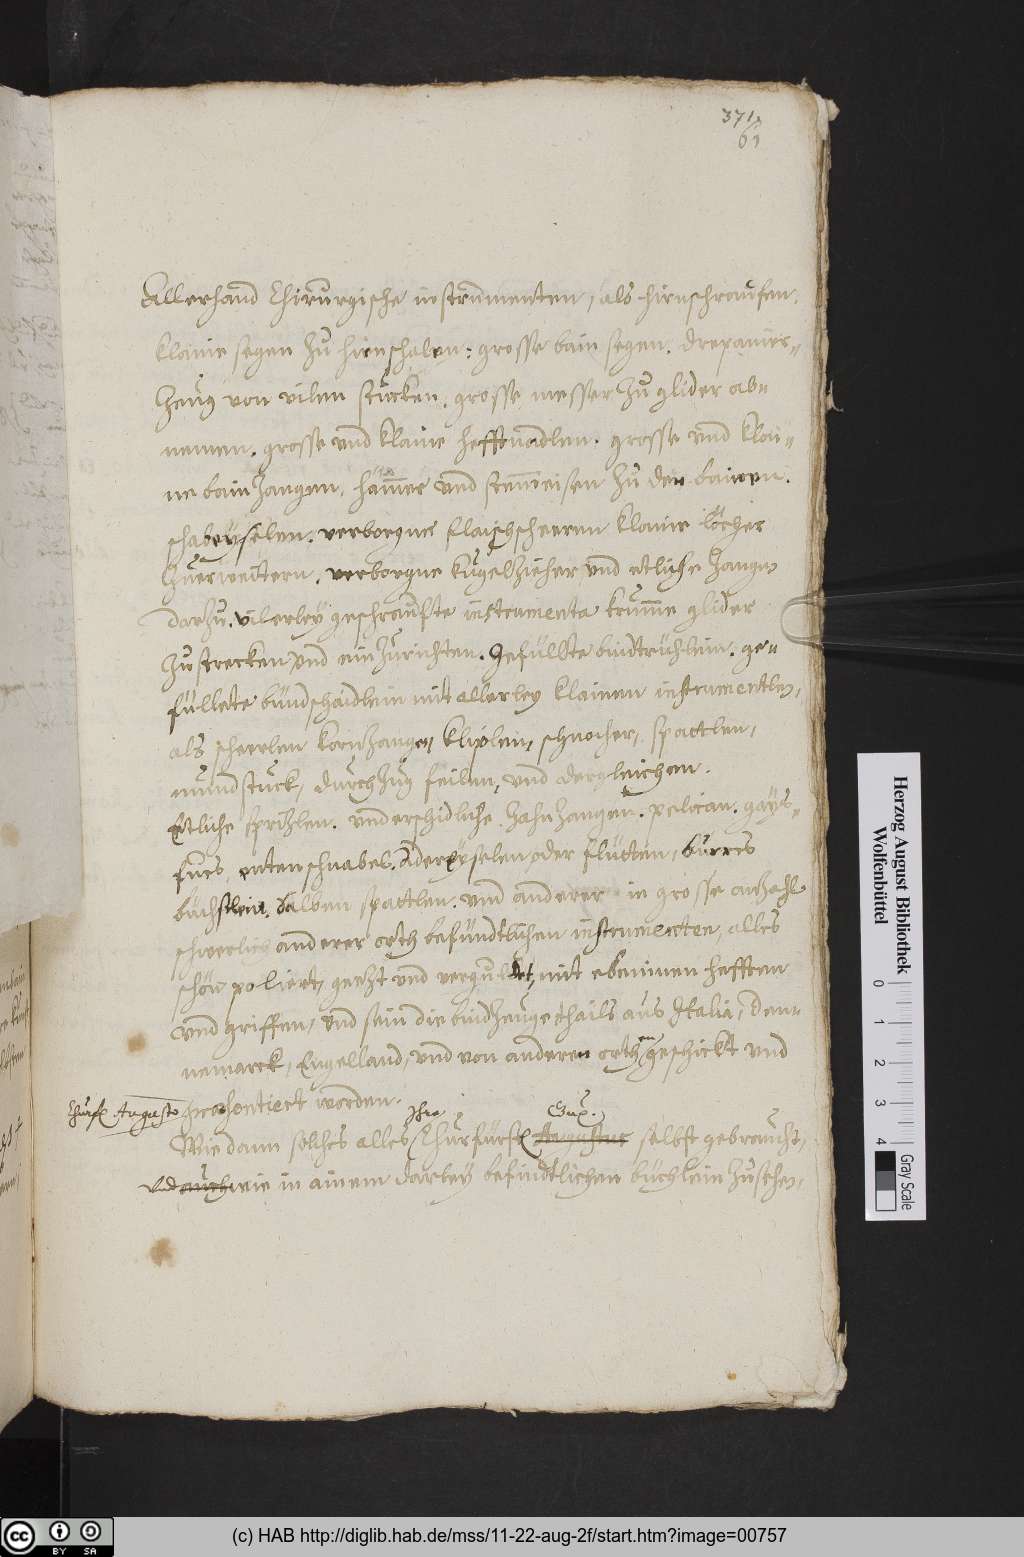 371.
61
Allerhand Chirurgische instrumenten, als hirnschraufen,
klaine segen zu hirnschalen: grosse bain segen. drepanier-
Zeug von vilen stucken, grosse messer zu glider ab-
nemen. grosse und klaine hefftnadlen. grosse und klai-
ne bain zangen, hämer und stemeisen zu den bainen.
schabeyselen. verborgne flaischscheeren klaine löcher
zuerweittern. verborgne kugelzieher und etliche zangen
darzu. vilerley geschraufte instrumenta krumme glider
zustrecken und einzurichten. Gefüllte bindtrühlein. ge-
füllete bündschaidlein mit allerley klainen instrumentlen,
als scheerlen kornzangen, kliplein, schnocher, spattlen,
mundstuck, durchzug feilen, und dergleichen.
Etliche spritzlen. underschidliche zahnzangen. pelican. gays-
fues, entenschnabel. Adereyselen oder flütten,
büchslein. salben spattlen. und anderer in grosse anzahl
schwerlich anderer orth befündtlichen instrumenten, alles
schön poliert, geezt und vergult, mit ebeninen hefften
und griffen, Und sein die bindzeuge thails aus Italia, Den-
nemarck, Engelland, und von anderen orthen geschickt und
Churf. Augusto praesentiert worden.
Ihre Gnd.
Wie dann solches alles Churfürst Augustus selbst gebraucht,
und auch wie in ainem darbey befindtlichen büchlein zusehen,
Herzog August Bibliothek
Wolfenbüttel
0 1 2 3 4
Gray Scale
cc BY SA
(c) HAB http://diglib.hab.de/mss/11-22-aug-2f/start.htm?image=00757